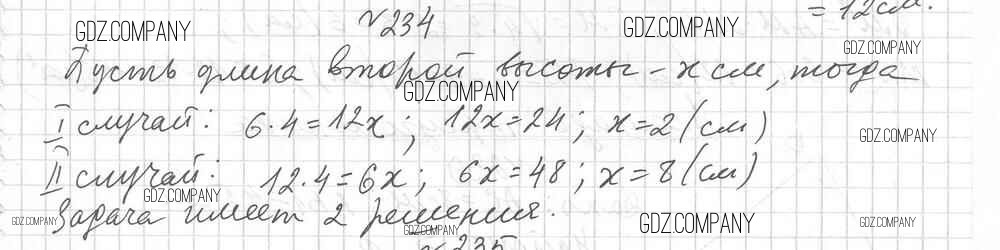 = 12 см.
№234
GDZ.COMPANY
GDZ.COMPANY
GDZ.COMPANY
Пусть длина второй высоты – x см, тогда
GDZ.COMPANY
I случай: 6·4=12x; 12x=24; x=2 (см)
GDZ.COMPANY
II случай: 12·4=6x; 6x=48; x=8 (см)
GDZ.COMPANY
Задача имеет 2 решения.
GDZ.COMPANY
GDZ.COMPANY
GDZ.COMPANY
GDZ.COMPANY
№235